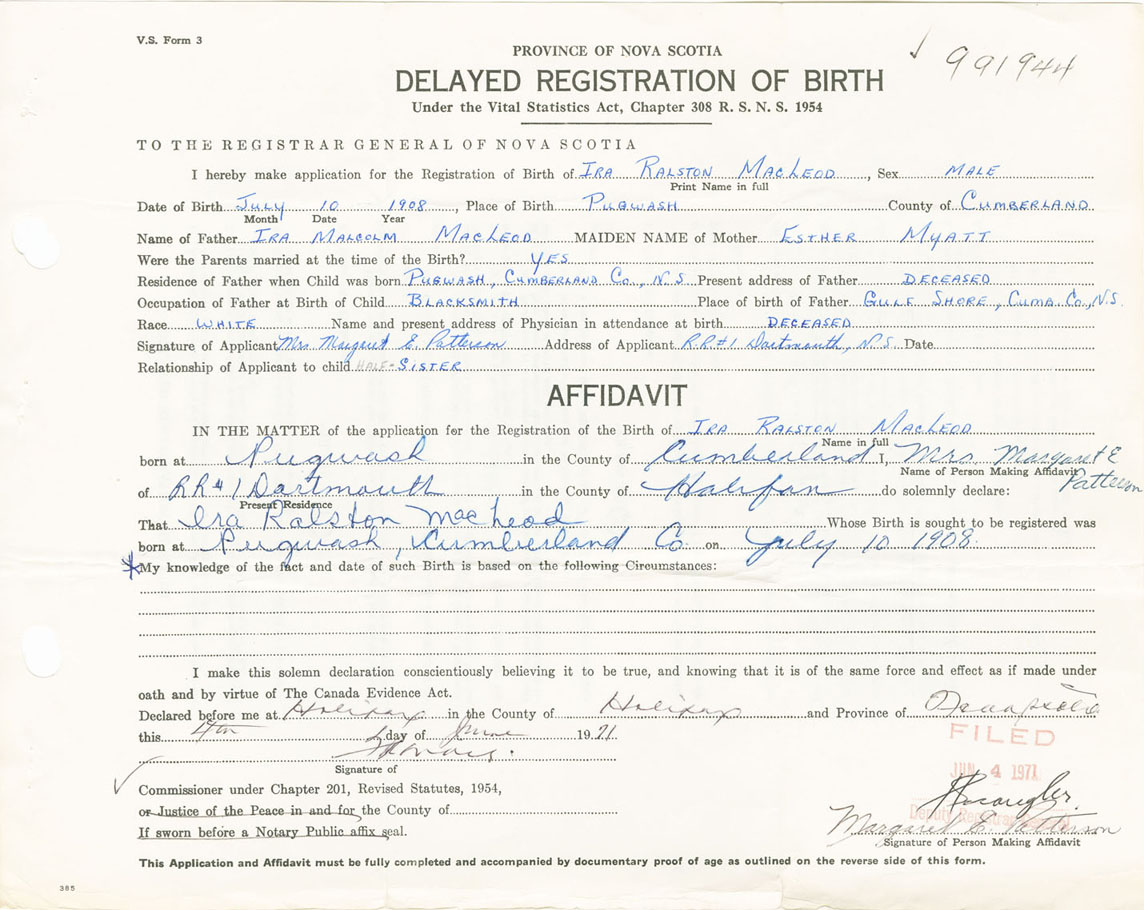 V.S. Form 3
991944
PROVINCE OF NOVA SCOTIA
DELAYED REGISTRATION OF BIRTH
Under the Vital Statistics Act, Chapter 308 R. S. N. S. 1954
TO THE REGISTRAR GENERAL OF NOVA SCOTIA
I hereby make application for the Registration of Birth of IRA RALSTON MACLEOD, Sex MALE
Print Name in full
Date of Birth JULY 10 1908, Place of Birth PUGWASH County of CUMBERLAND
Month Date Year
Name of Father IRA MALCOLM MACLEOD MAIDEN NAME of Mother ESTHER MYATT
Were the Parents married at the time of the Birth? YES
Residence of Father when Child was born PUGWASH, CUMBERLAND CO., N.S Present address of Father DECEASED
Occupation of Father at Birth of Child BLACKSMITH Place of birth of Father GULF SHORE, CUMB. CO., N.S.
Race WHITE Name and present address of Physician in attendance at birth DECEASED
Signature of Applicant Mrs Margaret E. Patterson Address of Applicant R.R#1 Dartmouth, N.S. Date
Relationship of Applicant to child HALF-SISTER
AFFIDAVIT
IN THE MATTER of the application for the Registration of the Birth of IRA RALSTON MACLEOD
Name in full
born at Pugwash in the County of Cumberland I, Mrs. Margaret E Patterson
Name of Person Making Affidavit
of RR#1 Dartmouth in the County of Halifax do solemnly declare:
Present Residence
That Ira Ralston MacLeod Whose Birth is sought to be registered was
born at Pugwash, Cumberland Co. on July 10 1908.
*My knowledge of the fact and date of such Birth is based on the following Circumstances:
I make this solemn declaration conscientiously believing it to be true, and knowing that it is of the same force and effect as if made under
oath and by virtue of The Canada Evidence Act.
Declared before me at Halifax in the County of Halifax and Province of
this 4th day of June 1971
FILED
JUN 4 1971
Signature of
Commissioner under Chapter 201, Revised Statutes, 1954,
or Justice of the Peace in and for the County of
Deputy Registrar General
If sworn before a Notary Public affix seal.
Margaret E. Patterson
Signature of Person Making Affidavit
This Application and Affidavit must be fully completed and accompanied by documentary proof of age as outlined on the reverse side of this form.
385